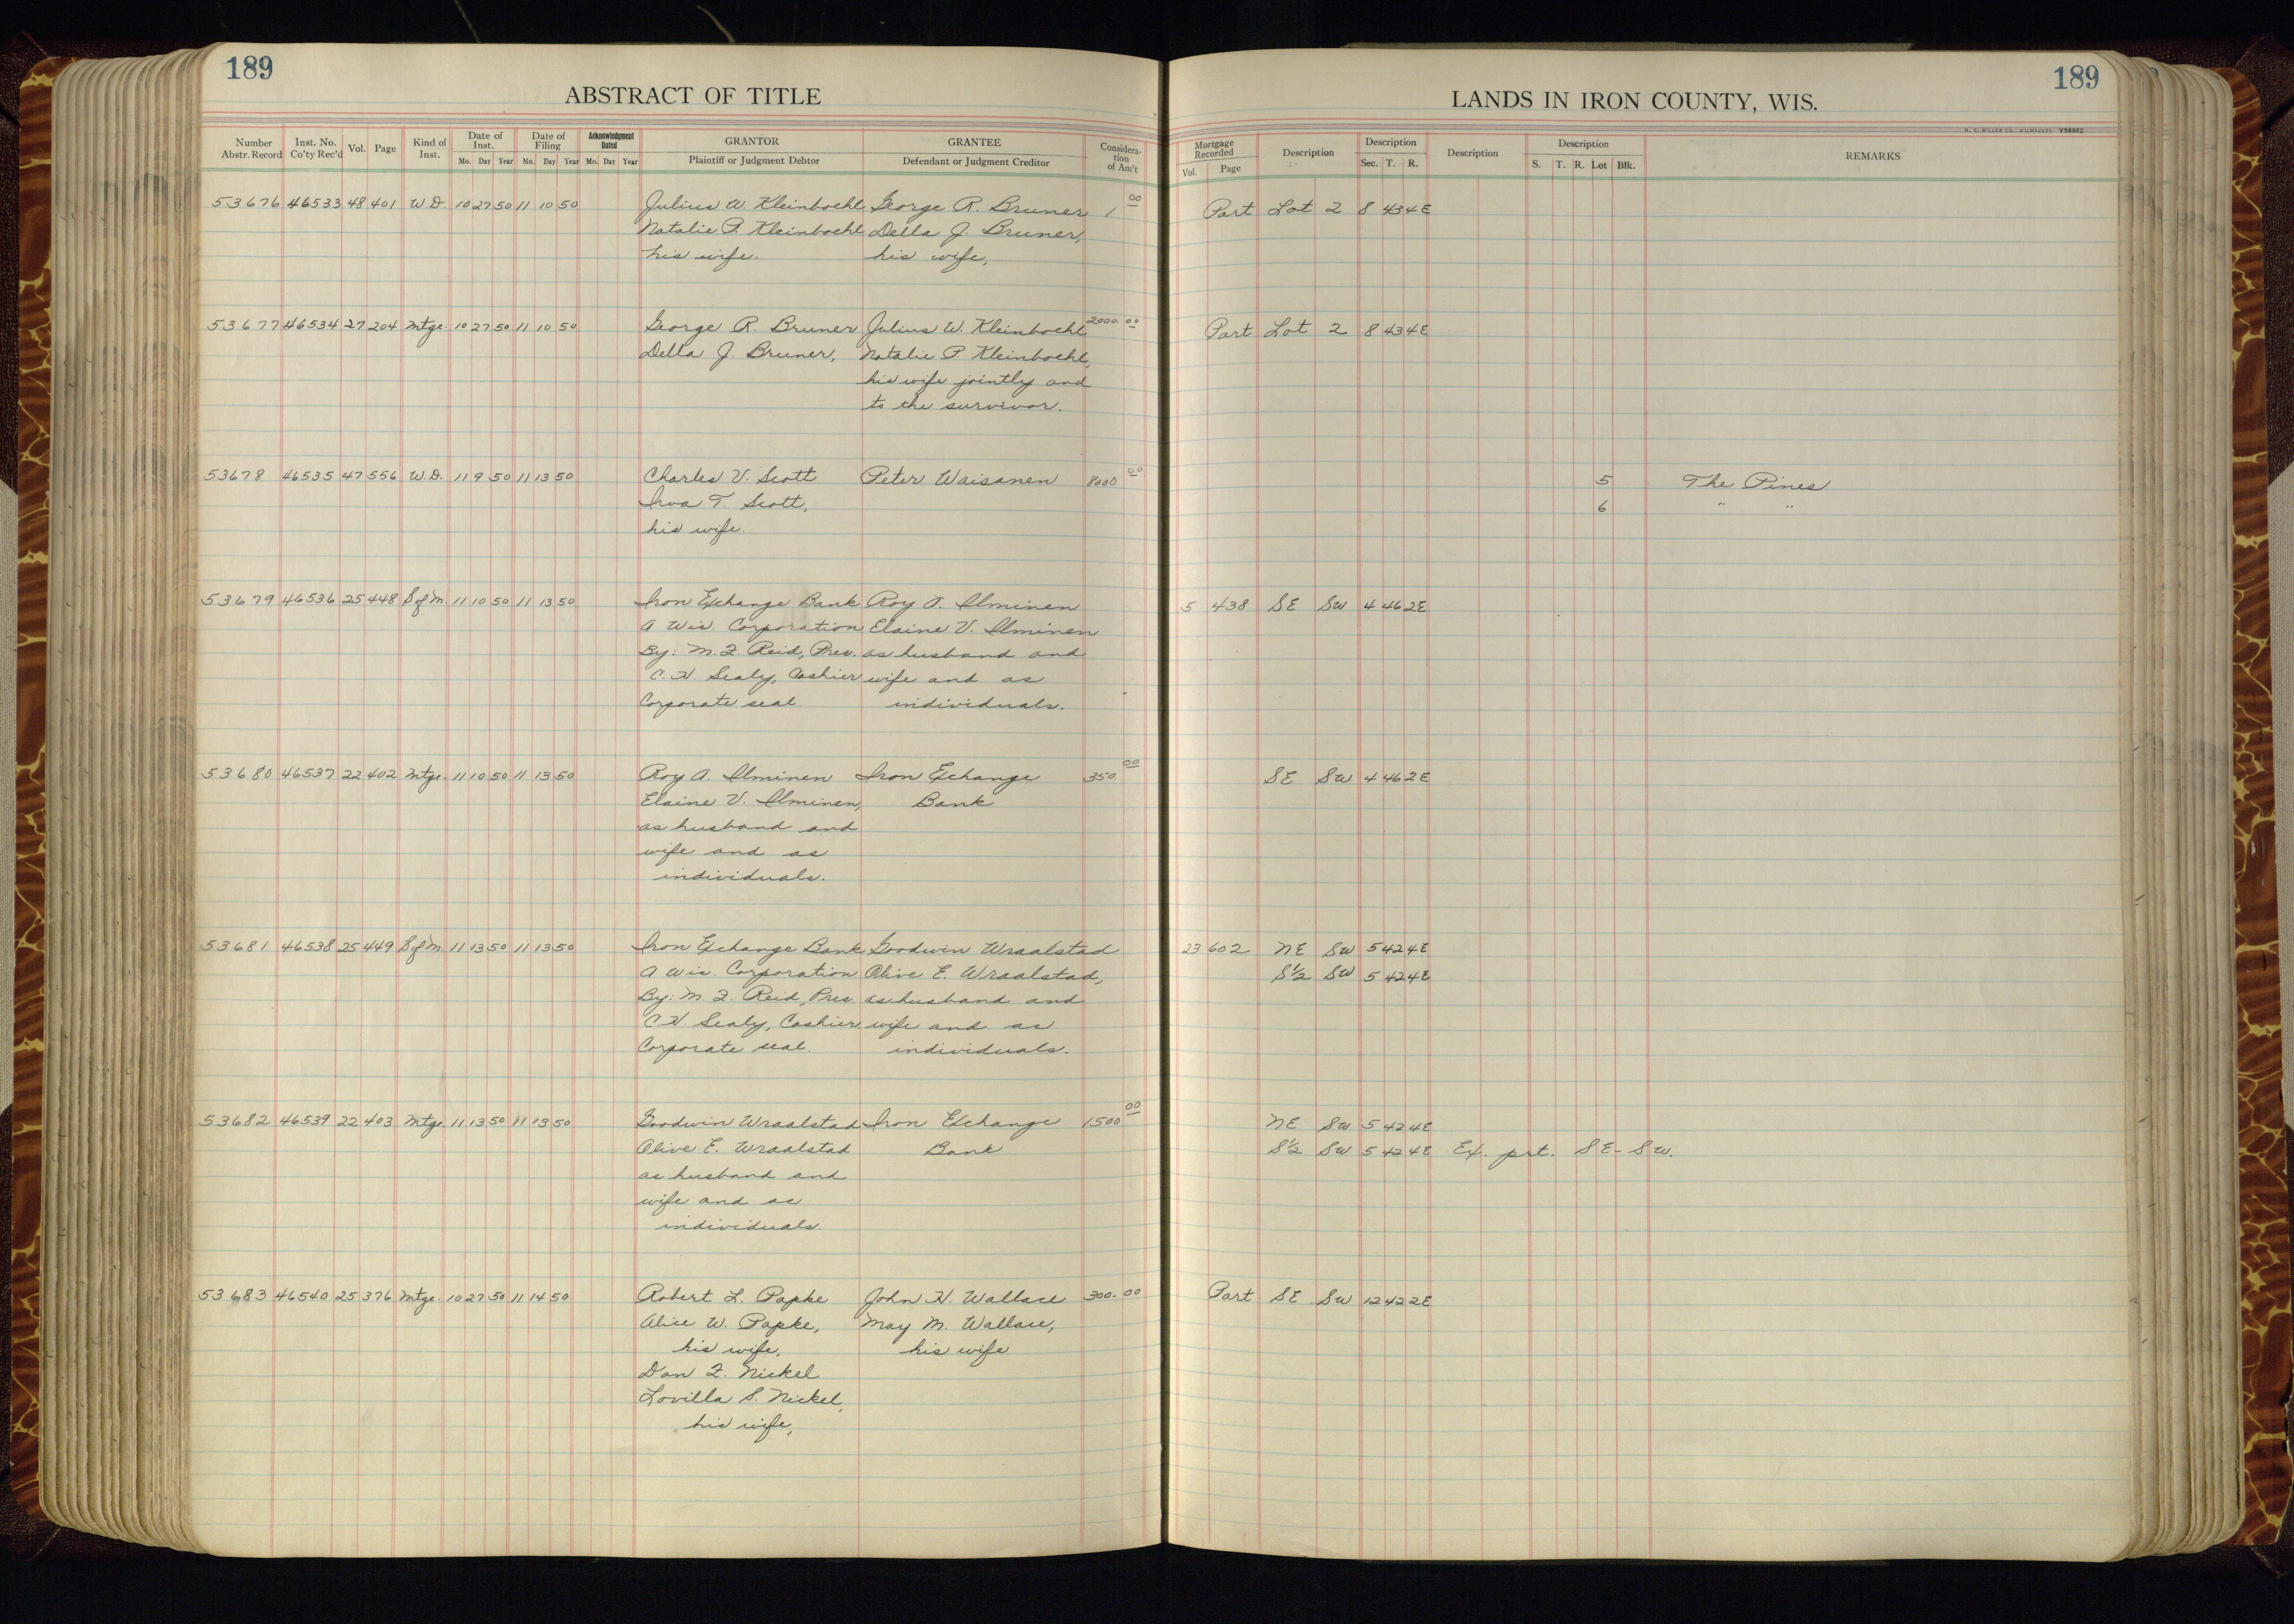 189
ABSTRACT OF TITLE
Number Abstr. Record Inst. No. Co'ty Rec'd Vol. Page Kind of Inst. Date of Inst. Mo. Day Year Date of Filing Mo. Day Year Acknowledgment Dated Mo. Day Year GRANTOR Plaintiff or Judgment Debtor GRANTEE Defendant or Judgment Creditor Consideration of Am't
53676 46533 48 401 W.D. 10 27 50 11 10 50 Julius W. Kleinboehl George R. Bruner 1 00
Natalie P. Kleinboehl Della J. Bruner,
his wife. his wife,
53677 46534 27 204 Mtge. 10 27 50 11 10 50 George R. Bruner Julius W. Kleinboehl 2000.00
Della J. Bruner, Natalie P. Kleinboehl,
his wife jointly and
to the survivor.
53678 46535 47 556 W.D. 11 9 50 11 13 50 Charles V. Scott Peter Waisanen 8000 00
Irva T. Scott,
his wife.
53679 46536 25 448 S of M. 11 10 50 11 13 50 Iron Exchange Bank Roy A. Ilminen
A Wis. Corporation Elaine V. Ilminen
By: M. F. Reid, Pres. as husband and
C. H. Sealy, Cashier wife and as
Corporate seal individuals.
53680 46537 22 402 Mtge. 11 10 50 11 13 50 Roy A. Ilminen Iron Exchange 350. 00
Elaine V. Ilminen, Bank
as husband and
wife and as
individuals.
53681 46538 25 449 S of M. 11 13 50 11 13 50 Iron Exchange Bank Goodwin Wraalstad
A Wis. Corporation Olive E. Wraalstad,
By: M. F. Reid, Pres. as husband and
C. H Sealy, Cashier wife and as
Corporate seal. individuals.
53682 46539 22 403 Mtge. 11 13 50 11 13 50 Goodwin Wraalstad Iron Exchange 1500 00
Olive E. Wraalstad Bank
as husband and
wife and as
individuals.
53683 46540 25 376 Mtge. 10 27 50 11 14 50 Robert L. Papke John H. Wallace 300.00
Alice W. Papke, May M. Wallace,
his wife, his wife
Dan F. Nickel
Lovilla S. Nickel,
his wife,
189
LANDS IN IRON COUNTY, WIS.
H. C. MILLER CO., MILWAUKEE V56862
Mortgage Recorded Vol. Page Description Description Sec. T. R. Description Description S. T. R. Lot Blk. REMARKS
Part Lot 2 8 43 4E
Part Lot 2 8 43 4E
5 The Pines
6 " "
5 438 SE SW 4 46 2E
SE SW 4 46 2E
23 602 NE SW 5 42 4E
S½ SW 5 42 4E
NE SW 5 42 4E
S½ SW 5 42 4E Ex. prt. SE-SW.
Part SE SW 12 42 2E